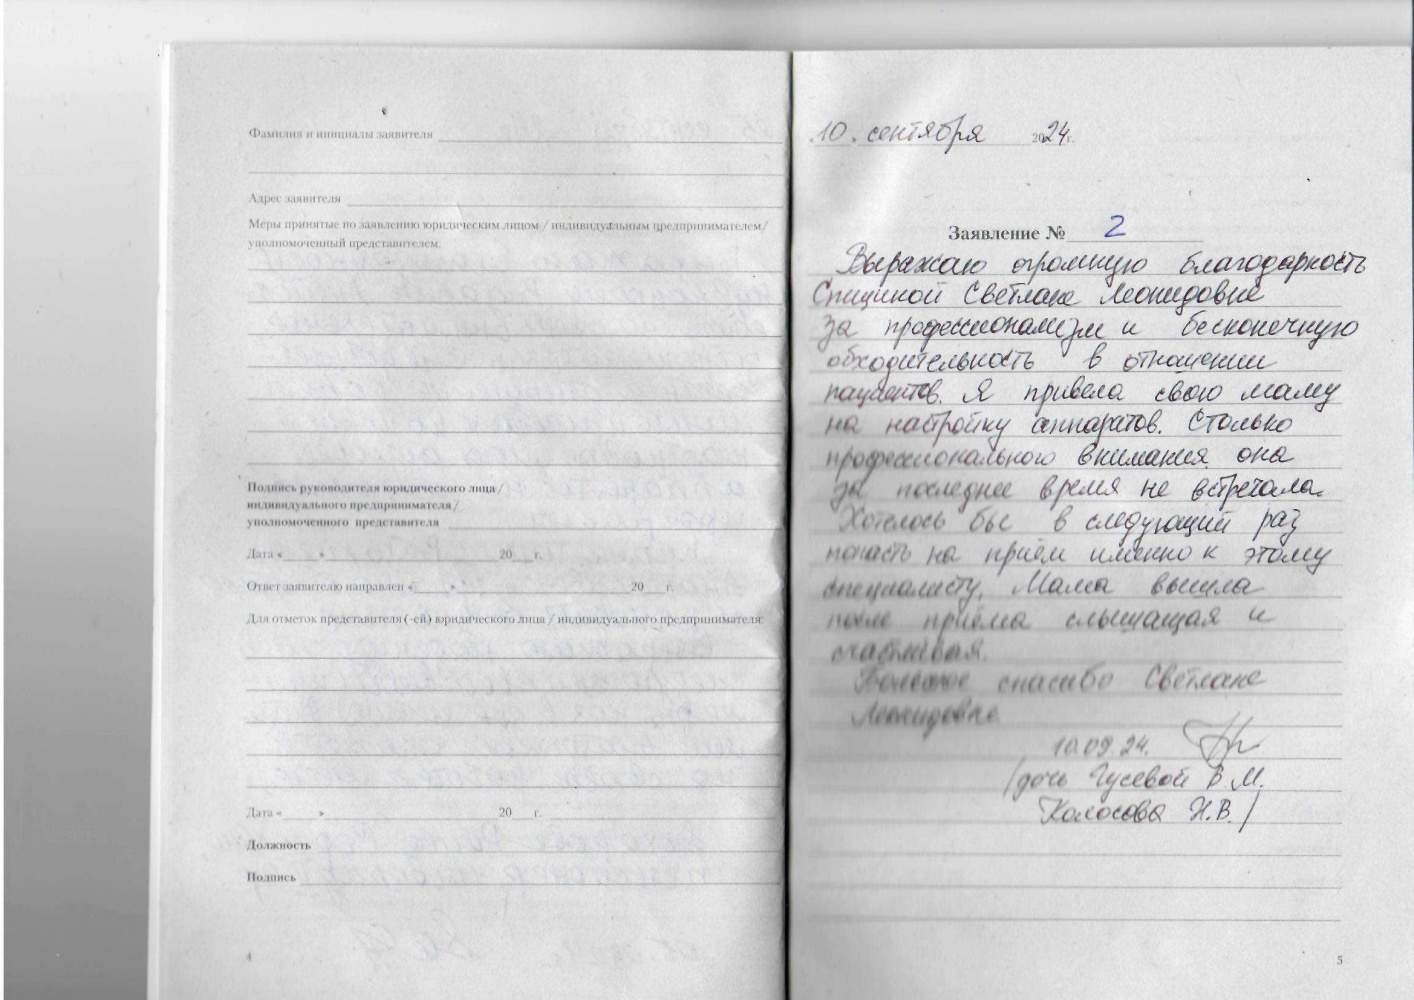 Фамилия и инициалы заявителя
Адрес заявителя
Меры принятые по заявлению юридическим лицом / индивидуальным предпринимателем/
уполномоченный представителем.
Подпись руководителя юридического лица/
индивидуального предпринимателя/
уполномоченного представителя
Дата « » 20 г.
Ответ заявителю направлен « ». 20 г.
Для отметок представителя (-ей) юридического лица / индивидуального предпринимателя:
Дата « » 20 г.
Должность
Подпись
4
10. сентября 2024г.
Заявление № 2
Выражаю огромную благодарность
Спициной Светлане Леонидовне
за профессионализм и бесконечную
обходительность в отношении
пациентов. Я привела свою маму
на настройку аппаратов. Столько
профессионального внимания она
за последнее время не встречала.
Хотелось бы в следующий раз
попасть на приём именно к этому
специалисту. Мама вышла
после приёма слышащая и
счастливая.
Большое спасибо Светлане
Леонидовне
10.09.24.
/дочь Гусевой В.М.
Колосова Н.В./
5